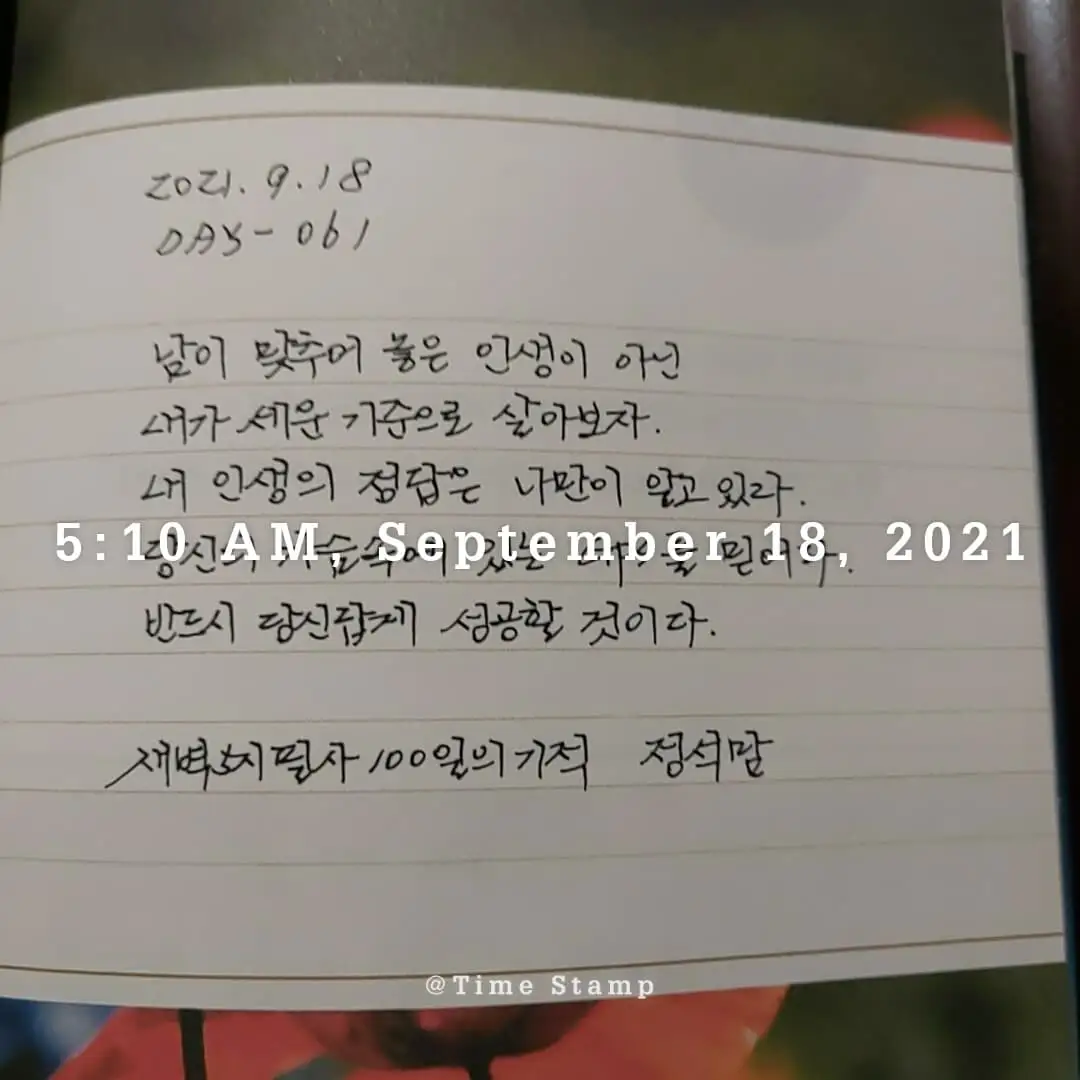 2021.9.18
DAY-061
남이 맞추어 놓은 인생이 아닌
내가 세운 기준으로 살아보자.
내 인생의 정답은 나만이 알고 있다.
5:10 AM, September 18, 2021
당신의 가슴속에 있는 믿어라.
반드시 당신답게 성공할 것이다.
새벽5시 필사 100일의기적 정석말
@Time Stamp